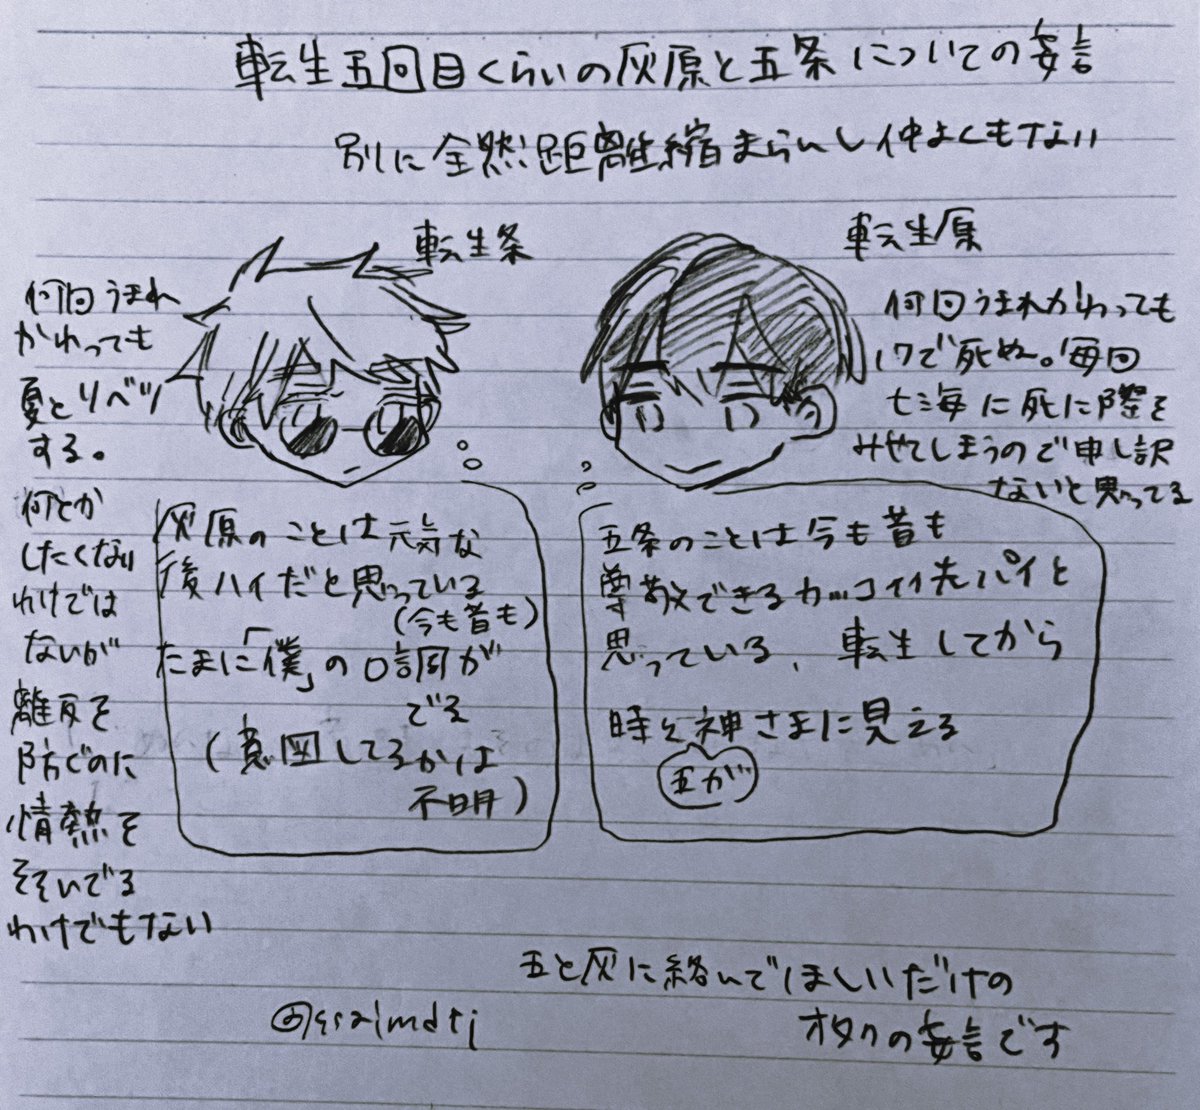 転生五回目くらいの灰原と五条についての妄言
別に全然距離縮まらんし仲よくもない
転生条
何回うまれ
かわっても
夏とリベツ
する。
何とか
したくない
わけでは
ないが
離反を
防ぐのに
情熱を
そそいでる
わけでもない
灰原のことは元気な
後ハイだと思っている
(今も昔も)
たまに「僕」の口調が
でる
(意図してるかは
不明)
転生原
何回うまれかわっても
17で死ぬ。毎回
七海に死に際を
みせてしまうので申し訳
ないと思ってる
五条のことは今も昔も
尊敬できるカッコイイ先パイと
思っている、転生してから
時々神さまに見える
五が
五と灰に絡んでほしいだけの
オタクの妄言です